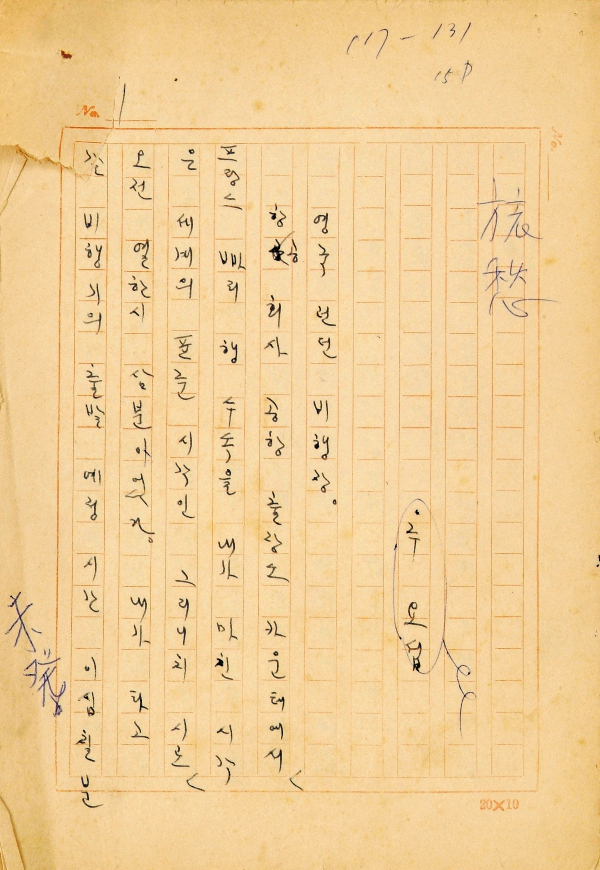 117 - 131
15P
No. 1
No.
旅愁
주요섭
영국 런던 비행장。
항공 회사 공항 출장소 카운테에서
프랑스 빠리 행 수속을 내가 마친 시각
은 세계의 표준 시각인 그리니치 시로
오전 열한시 삼분이었다。 내가 타고
갈 비행기의 출발 예정 시간 이십칠분
20×10